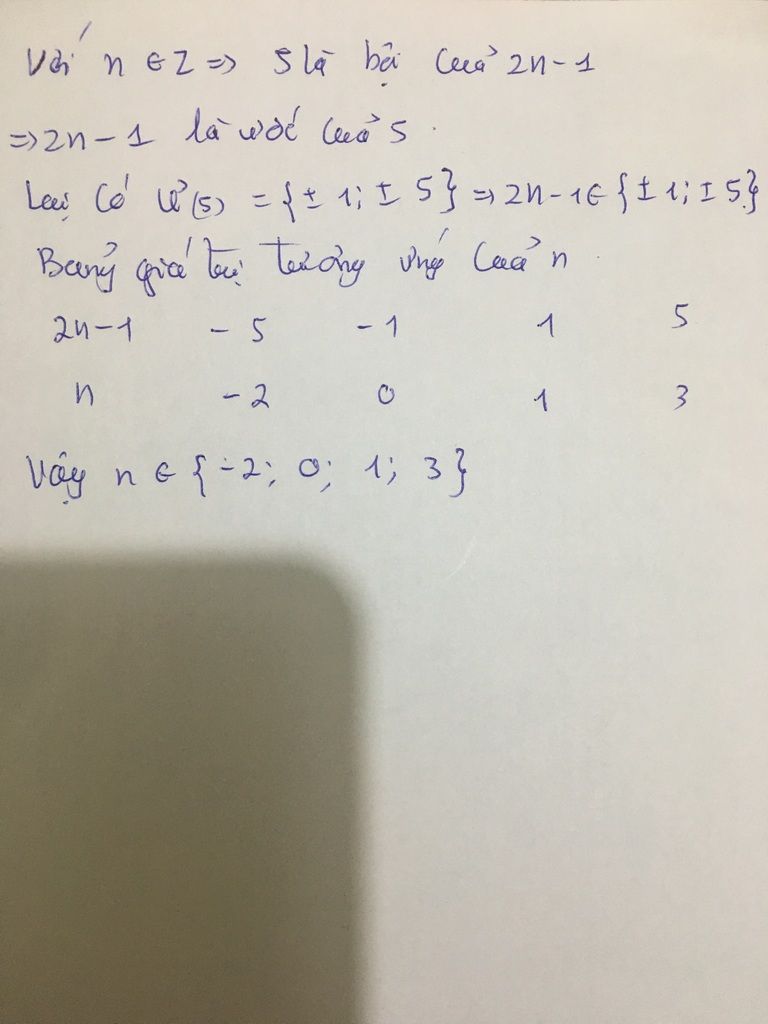 Với n ∈ Z => 5 là bội của 2n-1
=> 2n-1 là ước của 5.
Lại có Ư(5) = {± 1; ± 5} => 2n-1 ∈ {± 1; ± 5}
Bảng giá trị tương ứng của n.
2n-1 -5 -1 1 5
n -2 0 1 3
Vậy n ∈ {-2; 0; 1; 3}